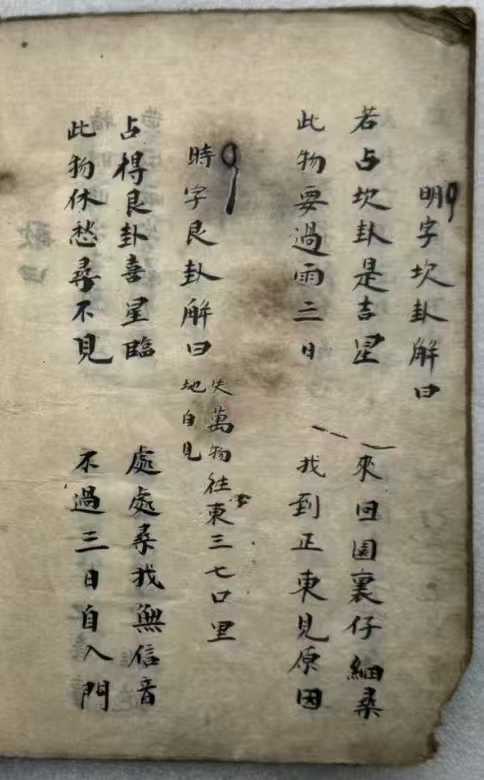 明字坎卦解曰
若占坎卦是吉星 來回園裏仔細桑
此物要過雨三日 找到正東見原因
時字艮卦解曰 失萬物往東三七口里
地自見
占得艮卦喜星臨 處處尋找無信音
此物休愁尋不見 不過三日自入門